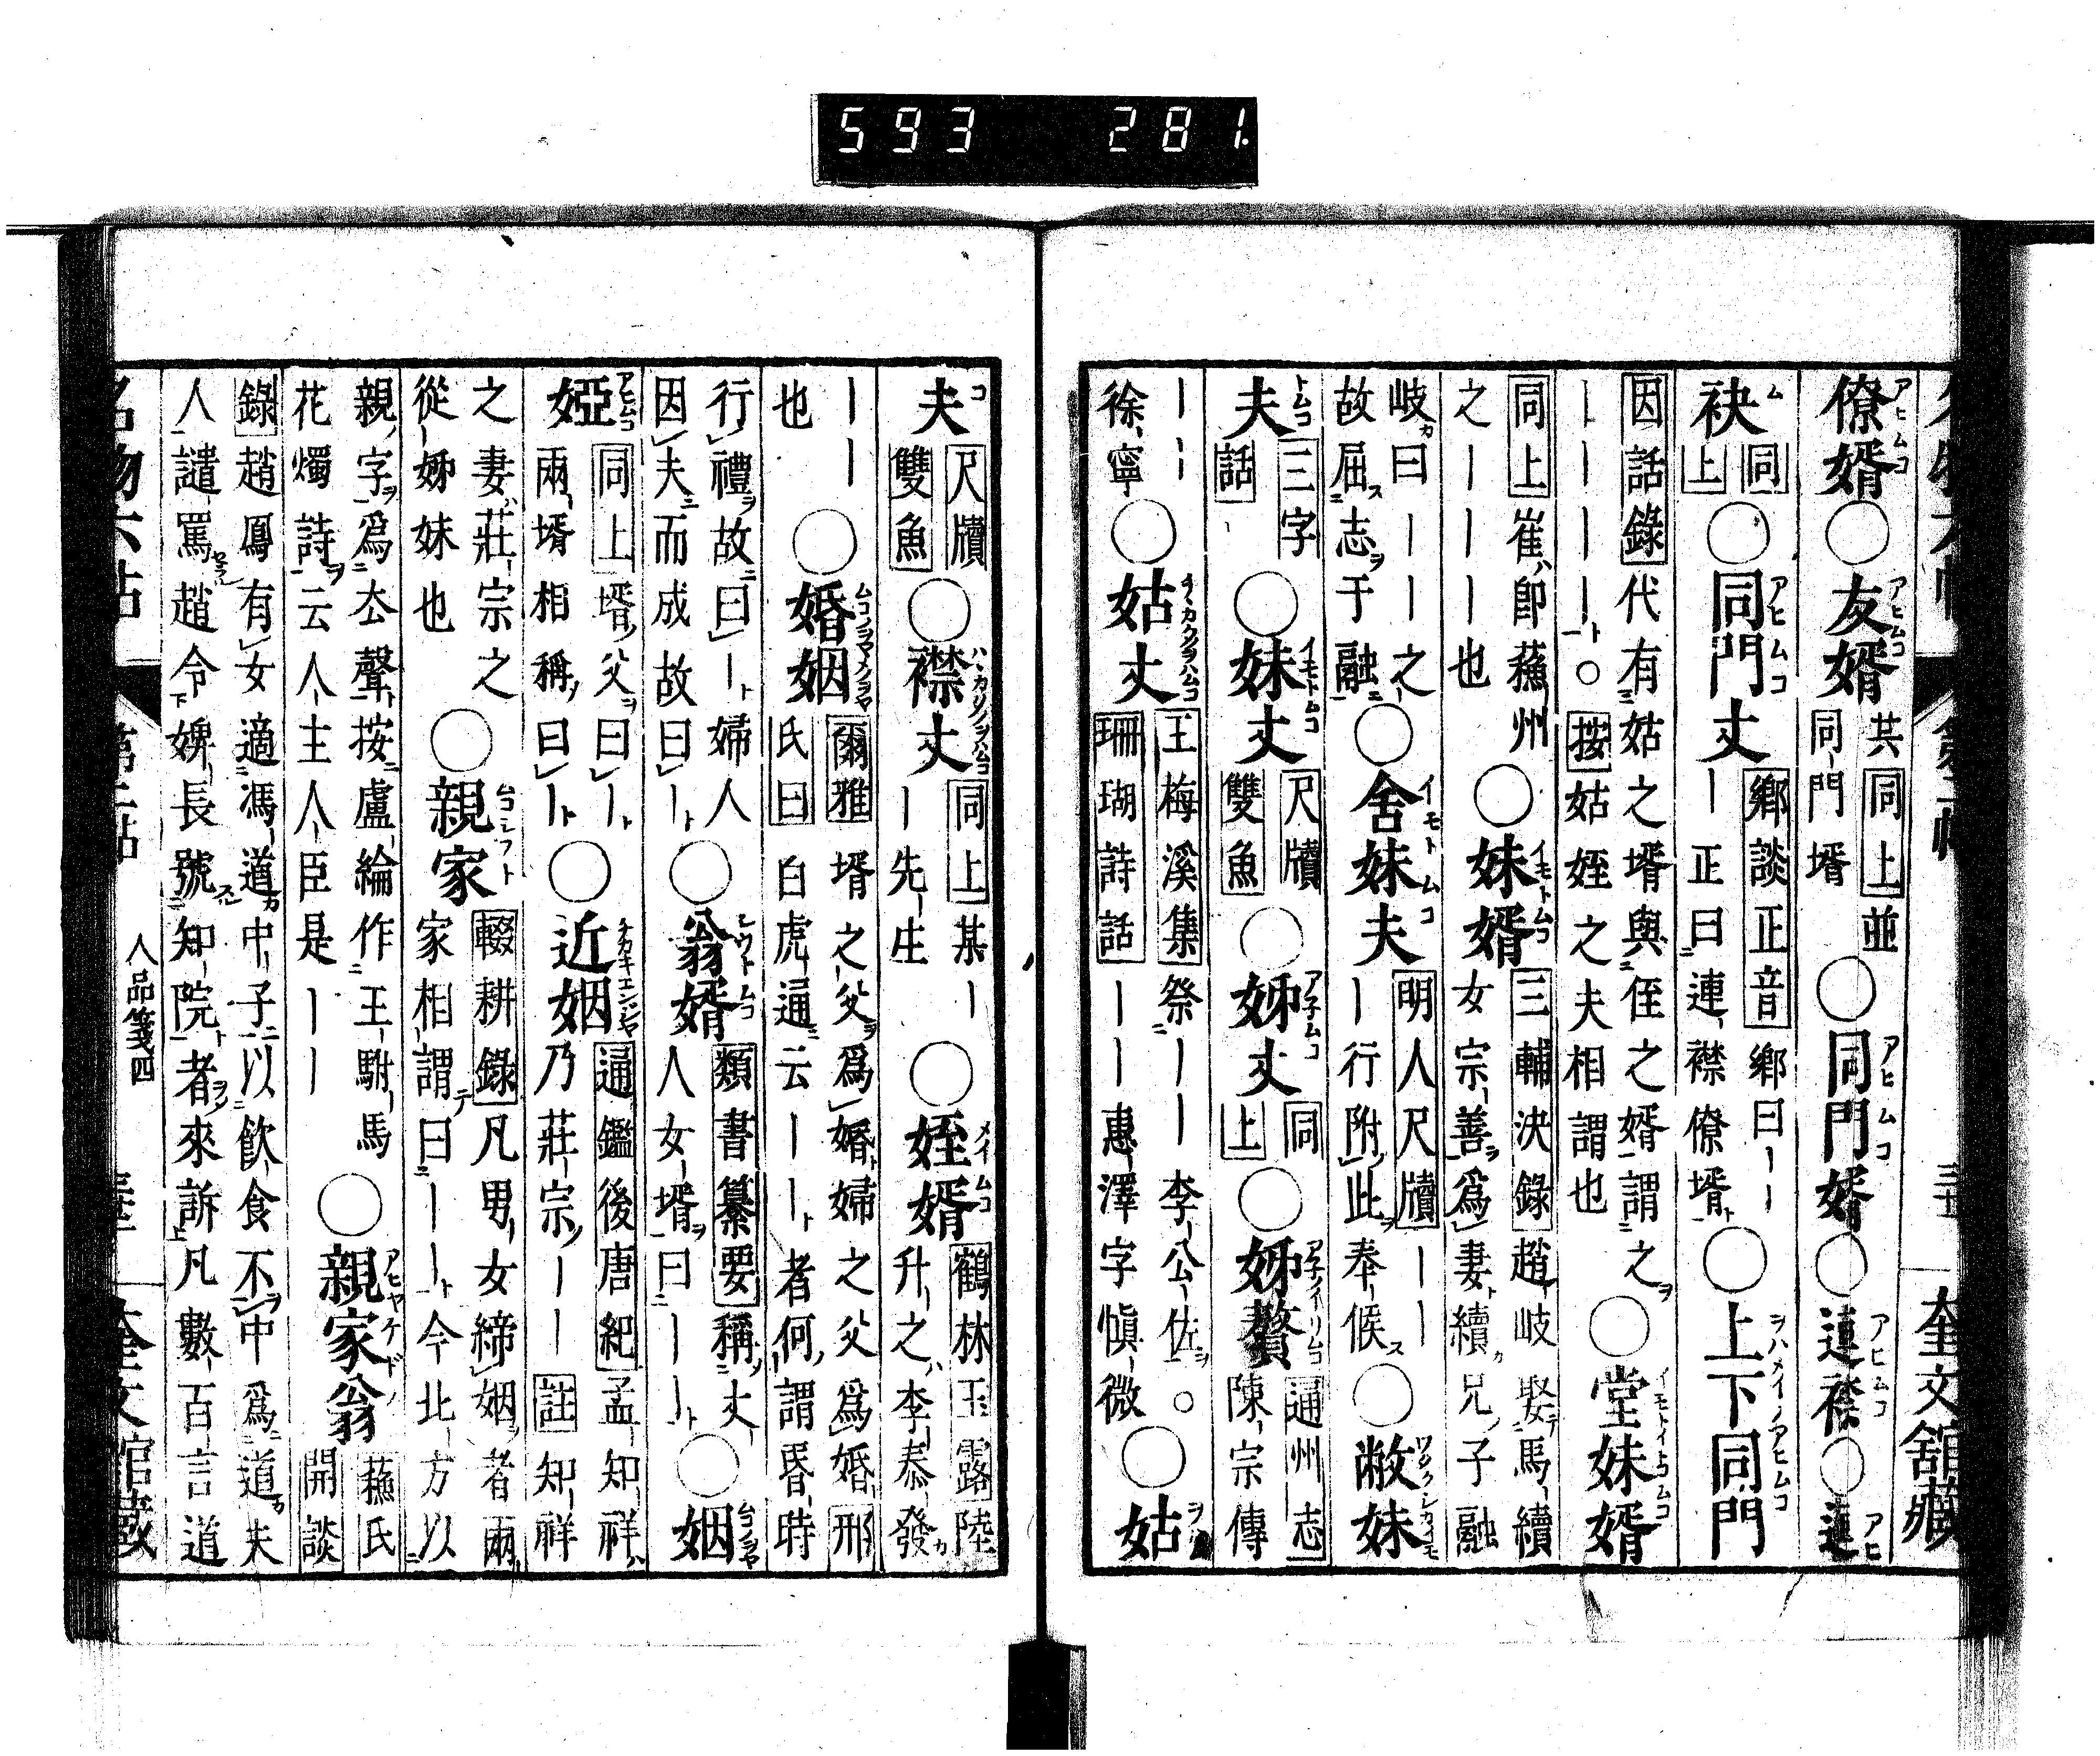 593 281.
奎文舘藏
僚婿○友婿共同上並同門壻○同門婿○連襟○連
袂同上○同門丈鄉談正音鄉曰丨丨丨正曰連襟僚壻○上下同門
因話錄代有姑之壻與侄之婿謂之丨丨丨丨○按姑姪之夫相謂也○堂妹婿
同上崔郎蘓州之丨丨丨丨也○妹婿三輔決錄趙岐娶馬續女宗善爲妻續兄子融
岐曰丨丨丨之故屈志于融○舍妹夫明人尺牘丨丨丨行附此奉候○敝妹
夫三字話○妹丈尺牘雙魚○姊丈同上○姊贅通州志陳宗傳
丨丨丨徐寧○姑丈王梅溪集祭丨丨李公佐○珊瑚詩話丨丨惠澤字愼微○姑
夫尺牘雙魚○襟丈同上某丨丨先生○姪婿鶴林玉露陸升之李泰發
丨丨丨也○婚姻爾雅壻之父爲婚婦之父爲婚邢氏曰白虎通云丨丨者何謂昏時
行禮故曰丨婦人因夫而成故曰丨○翁婿類書纂要稱丈人女壻曰丨丨○姻
婭同上壻父曰丨兩壻相稱曰丨○近姻通鑑後唐紀孟知祥乃莊宗丨丨註知祥
之妻莊宗之從姊妹也○親家輟耕錄凡男女締姻者兩家相謂曰丨丨今北方以
親字爲去聲按盧綸作王駙馬花燭詩云人主人臣是丨丨○親家翁蘓氏開談
錄趙鳳有女適馮道中子以飲食不中爲道夫人譴罵趙令婢長號知院者來訴凡數百言道
人品箋四